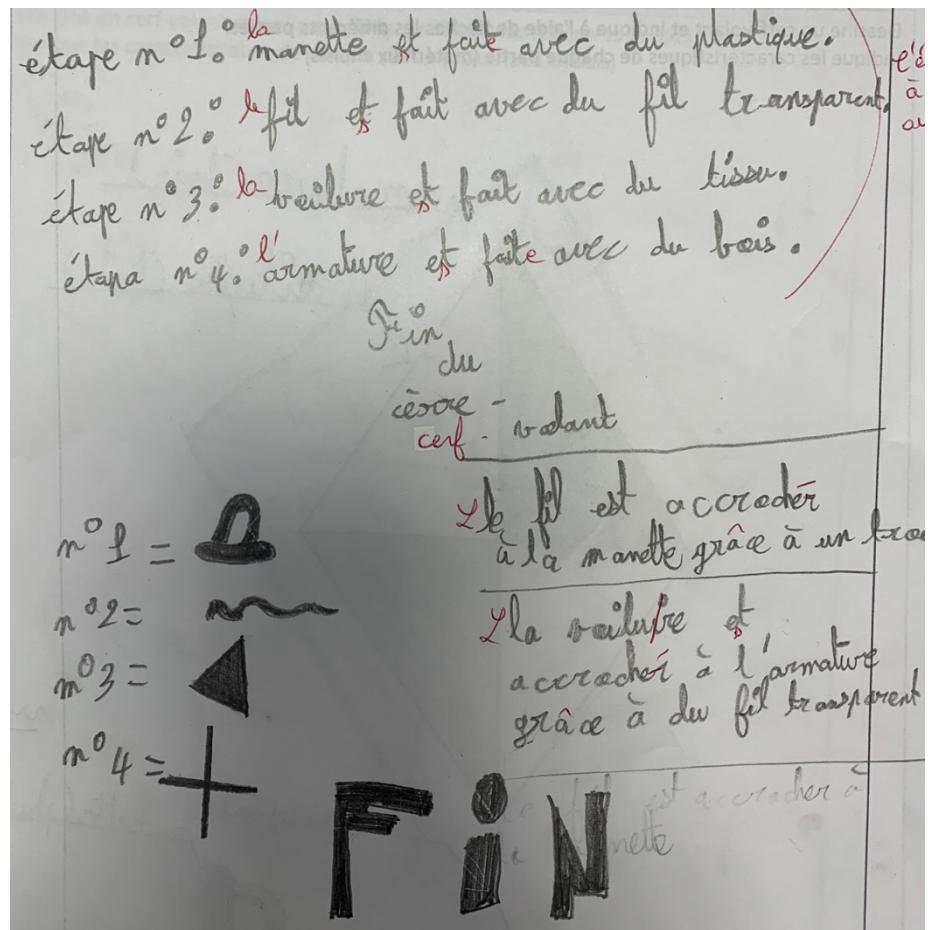 étape n°1: la manette est faite avec du plastique.
étape n°2: le fil est fait avec du fil transparent.
étape n°3: la voilure est fait avec du tissu.
étapa n°4: l'armature est faite avec du bois.
Fin
du
cèrore - volant
cerf -
Le fil est accrocher
à la manette grâce à un trou
n°1 =
n°2=
La voilure est
n°3=
accroché à l'armature
grâce à du fil transparent
n°4=
FiN